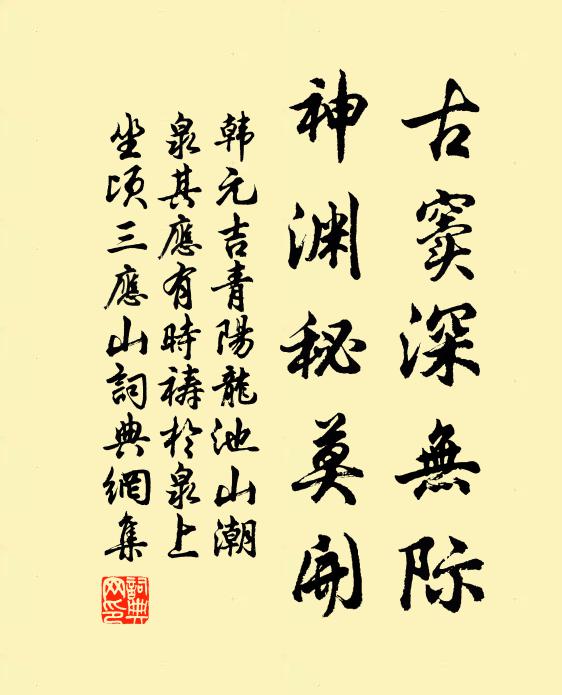 古竇深無际
神渊秘莫開
韩元吉青陽龍池山潮
泉其應有時禱於泉上
坐頃三應山詞典網集
詞典網印